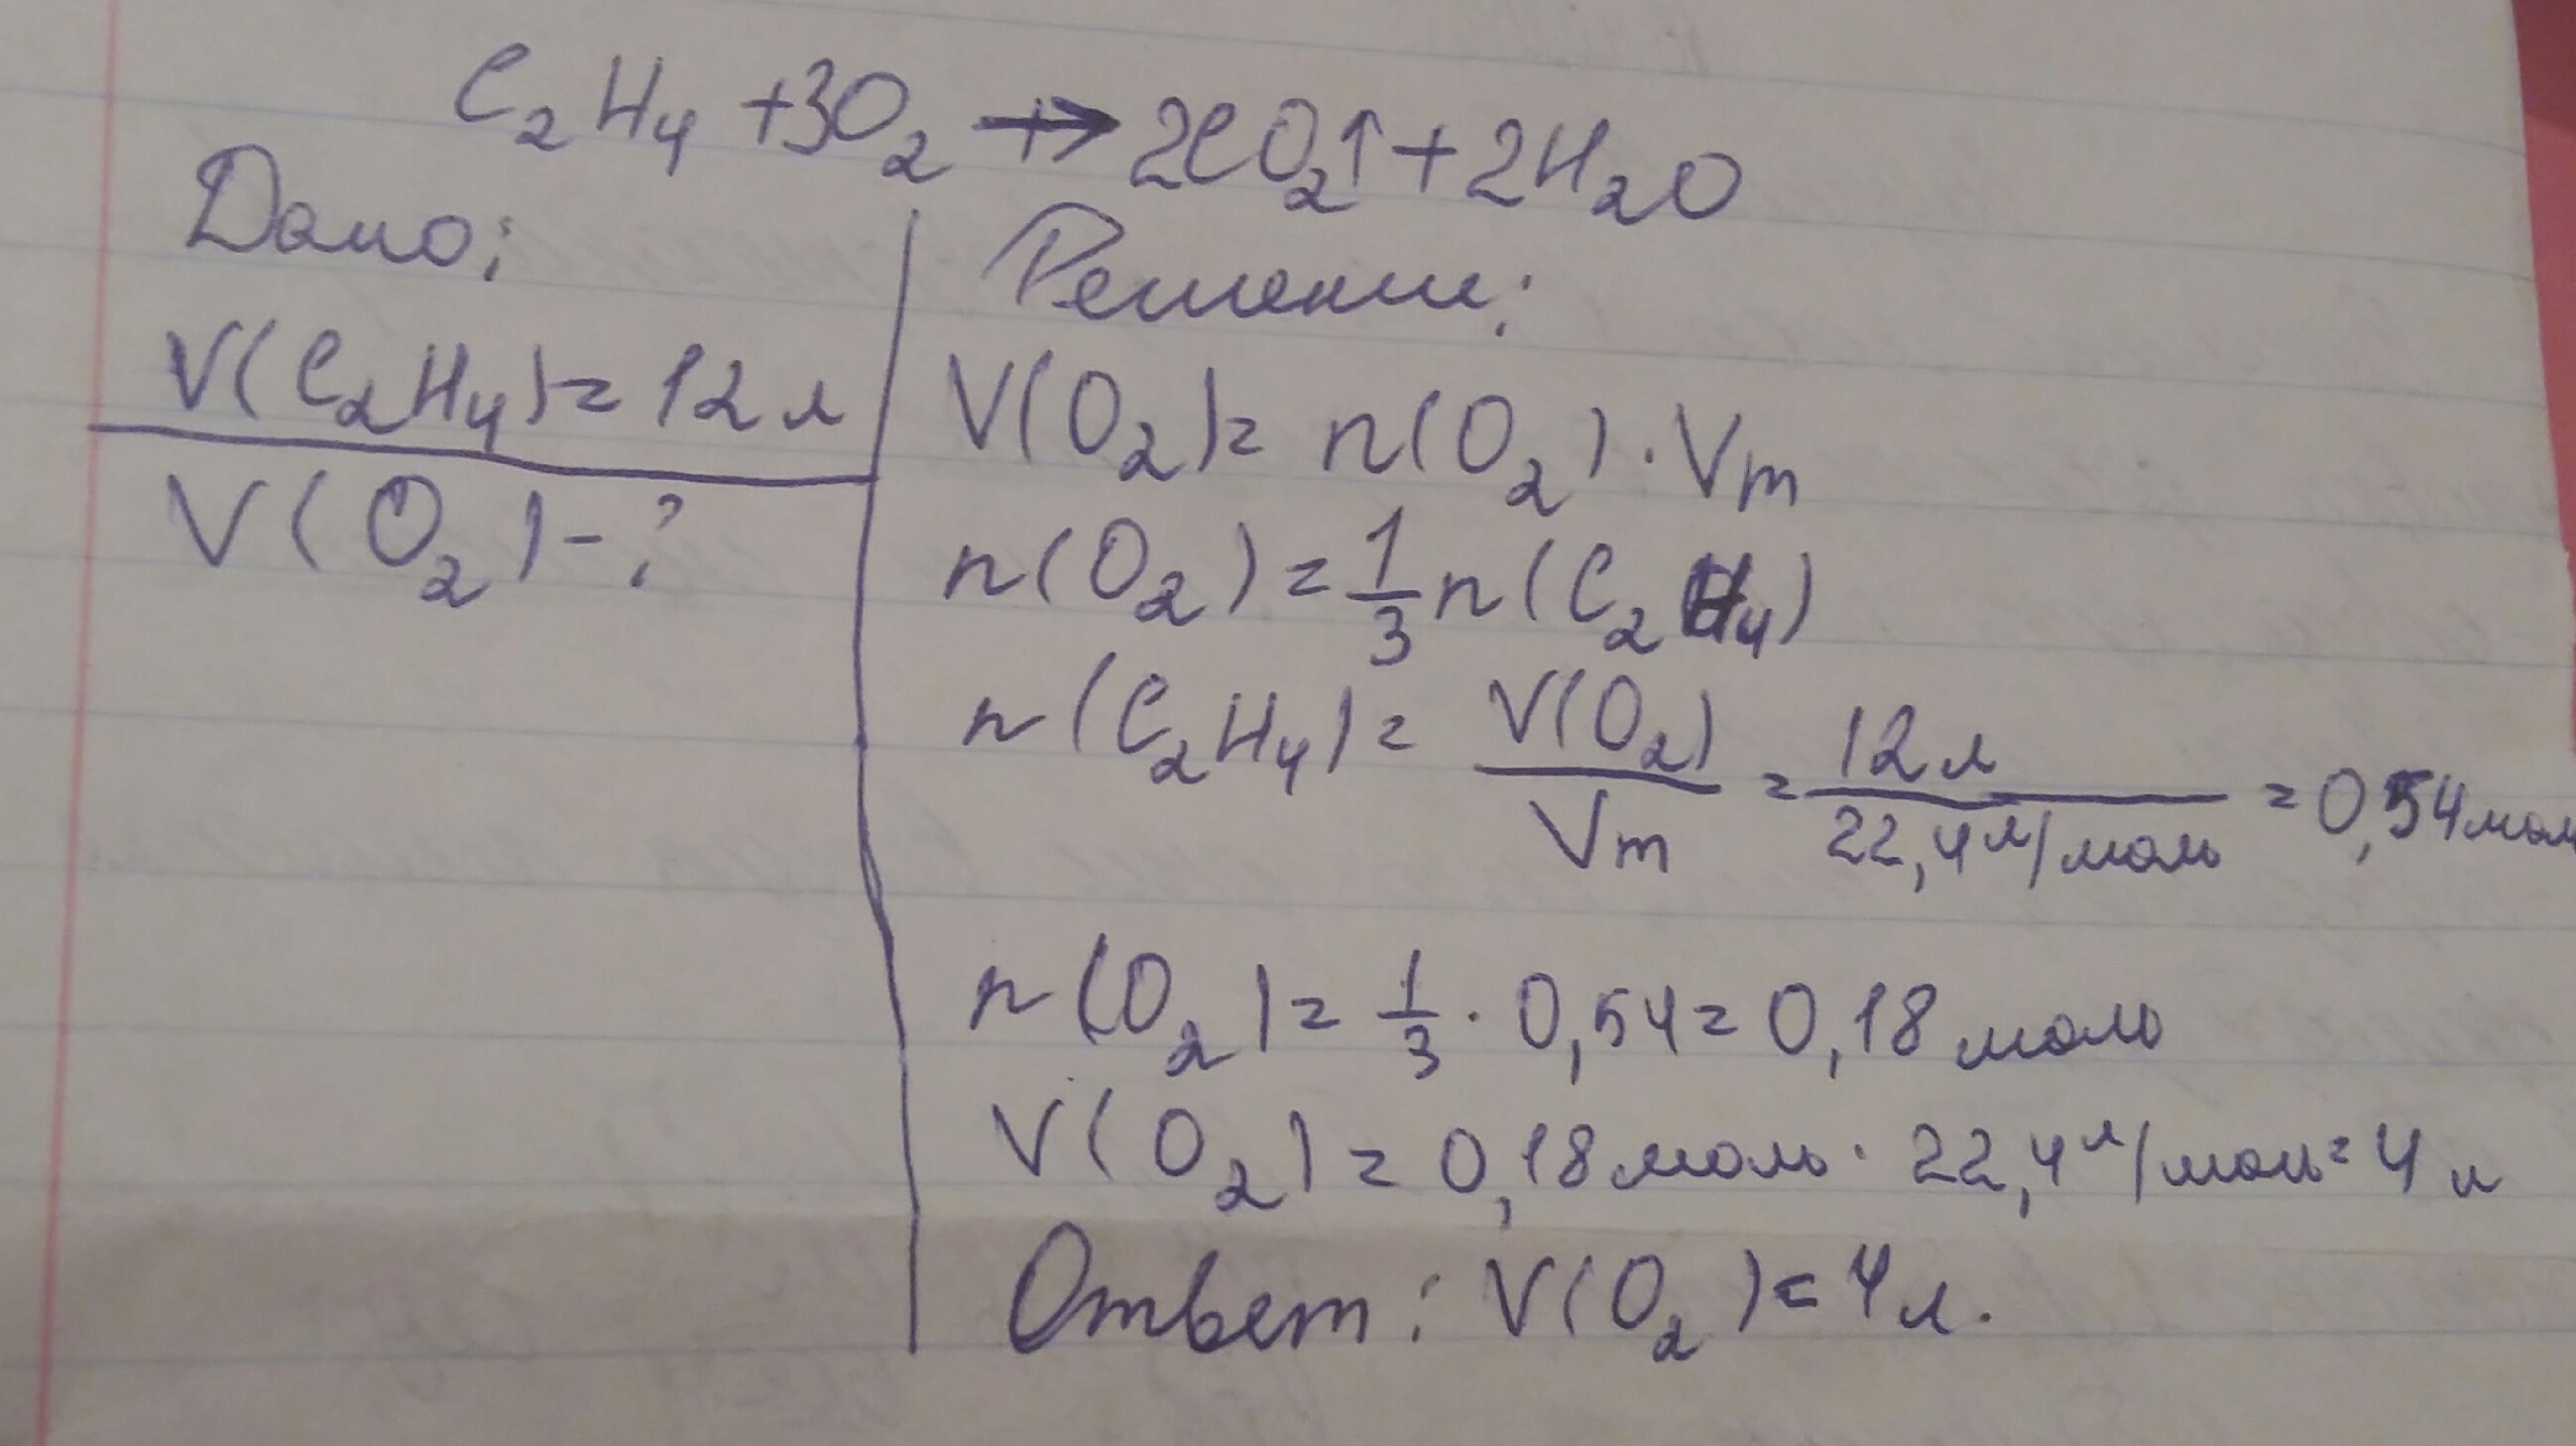 C₂H₄ + 3O₂ → 2CO₂↑ + 2H₂O
Дано:
V(C₂H₄) = 12 л
V(O₂) - ?
Решение:
V(O₂) = n(O₂) · Vm
n(O₂) = 1/3 n(C₂H₄)
n(C₂H₄) = V(O₂)/Vm = 12 л/22,4 л/моль = 0,54 мол
n(O₂) = 1/3 · 0,54 = 0,18 моль
V(O₂) = 0,18 моль · 22,4 л/моль = 4 л
Ответ: V(O₂) = 4 л.